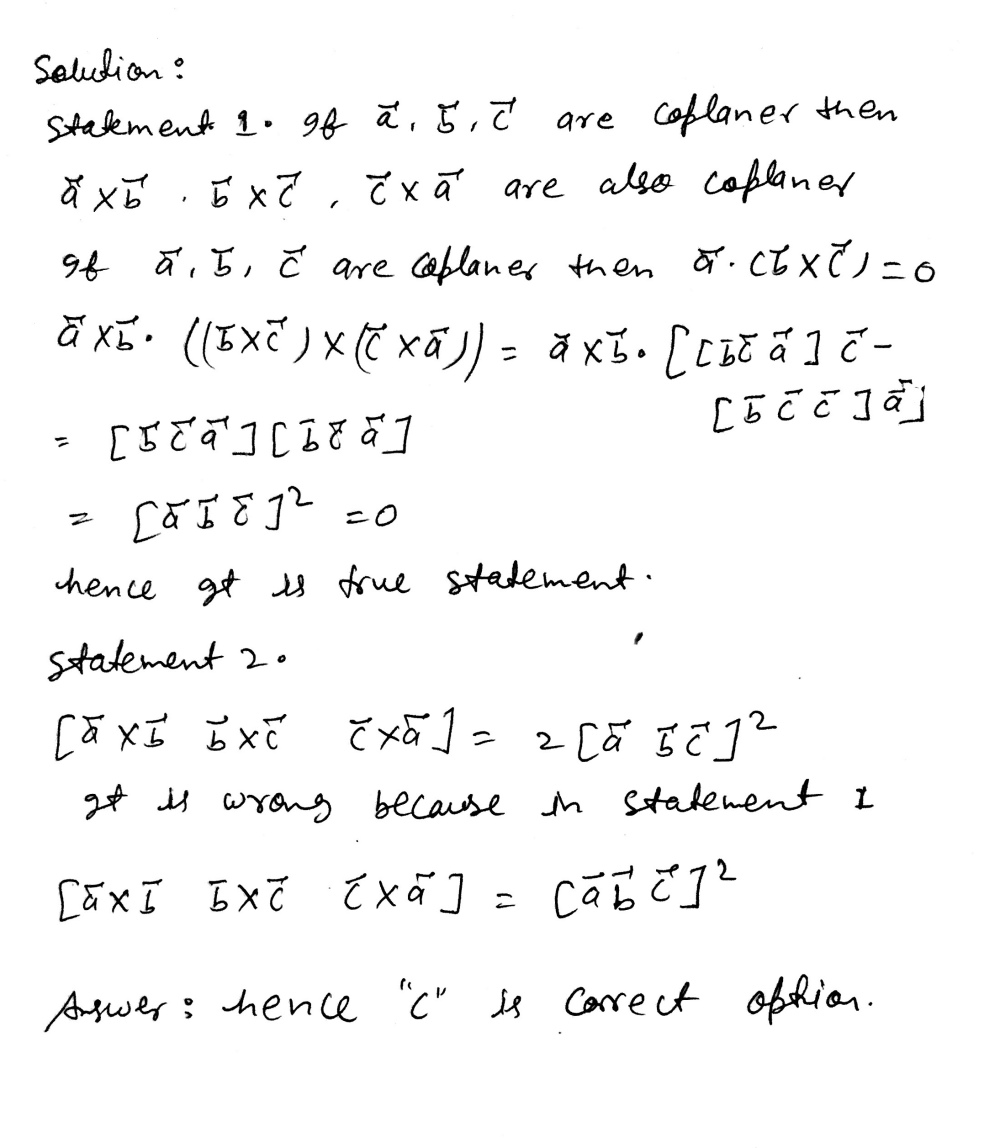 Solution :
Statement 1. If a⃗, b⃗, c⃗ are coplaner then
a⃗ × b⃗ , b⃗ × c⃗ , c⃗ × a⃗ are also coplaner
If a⃗, b⃗, c⃗ are coplaner then a⃗ . (b⃗ × c⃗) = 0
a⃗ × b⃗ . ((b⃗ × c⃗) × (c⃗ × a⃗)) = a⃗ × b⃗ . [[b⃗ c⃗ a⃗] c⃗ -
[b⃗ c⃗ c⃗] a⃗]
= [b⃗ c⃗ a⃗] [b⃗ c⃗ a⃗]
= [a⃗ b⃗ c⃗]² = 0
hence It is true statement.
Statement 2.
[a⃗ × b⃗ b⃗ × c⃗ c⃗ × a⃗] = 2 [a⃗ b⃗ c⃗]²
It is wrong because in statement 1
[a⃗ × b⃗ b⃗ × c⃗ c⃗ × a⃗] = [a⃗ b⃗ c⃗]²
Answer : hence "C" is correct option.